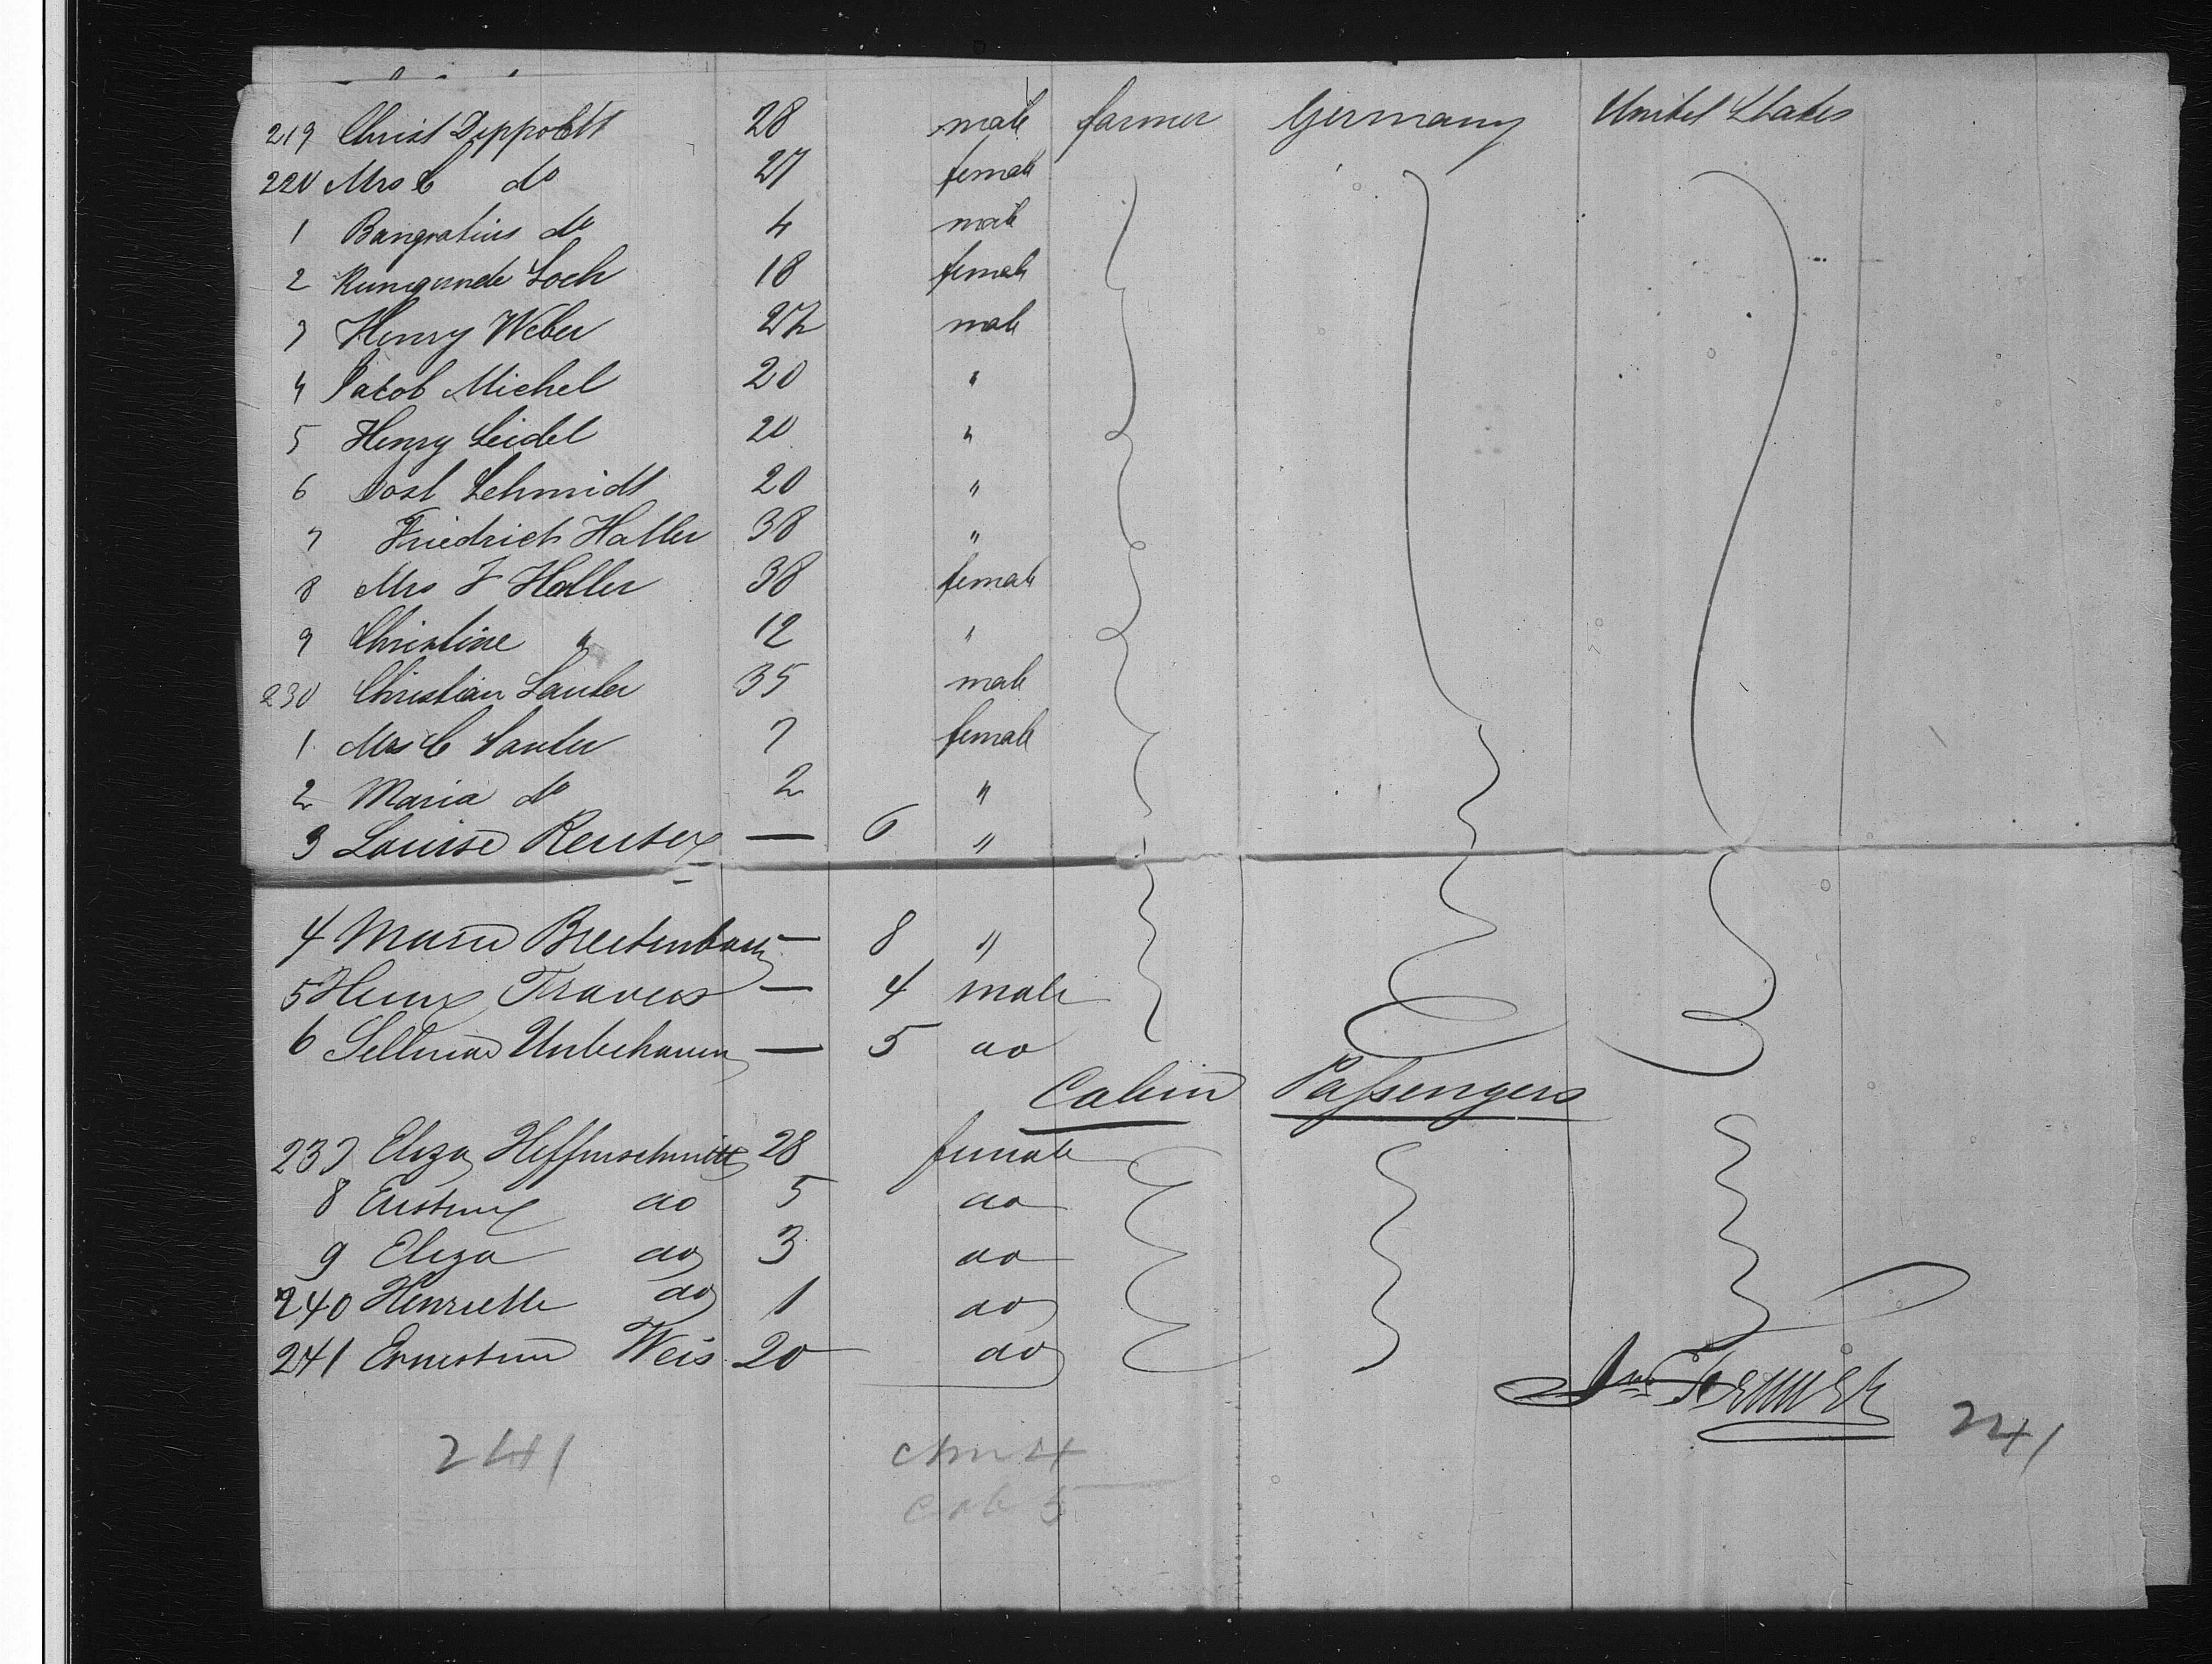 219 Christ Dippoldt 28 male farmer Germany United States
220 Mrs C do 27 female
1 Bangratius do 4 male
2 Kunigunde Loch 18 female
3 Henry Weber 27 male
4 Jacob Michel 20 "
5 Henry Seidel 20 "
6 Jost Schmidt 20 "
7 Friedrich Haller 38 "
8 Mrs F Haller 38 female
9 Christine " 12 "
230 Christian Sauter 35 male
1 Mrs C Sauter 7 female
2 Maria do 2 "
3 Louise Reuter — 6 "
4 Maria — 8 "
5 Henry — 4 male
6 — 5 do
Cabin Passengers
237 Eliza 28 female
8 do 5 do
9 Eliza do 3 do
240 Henriette do 1 do
241 Ernestine Weis 20 do
241
241
5